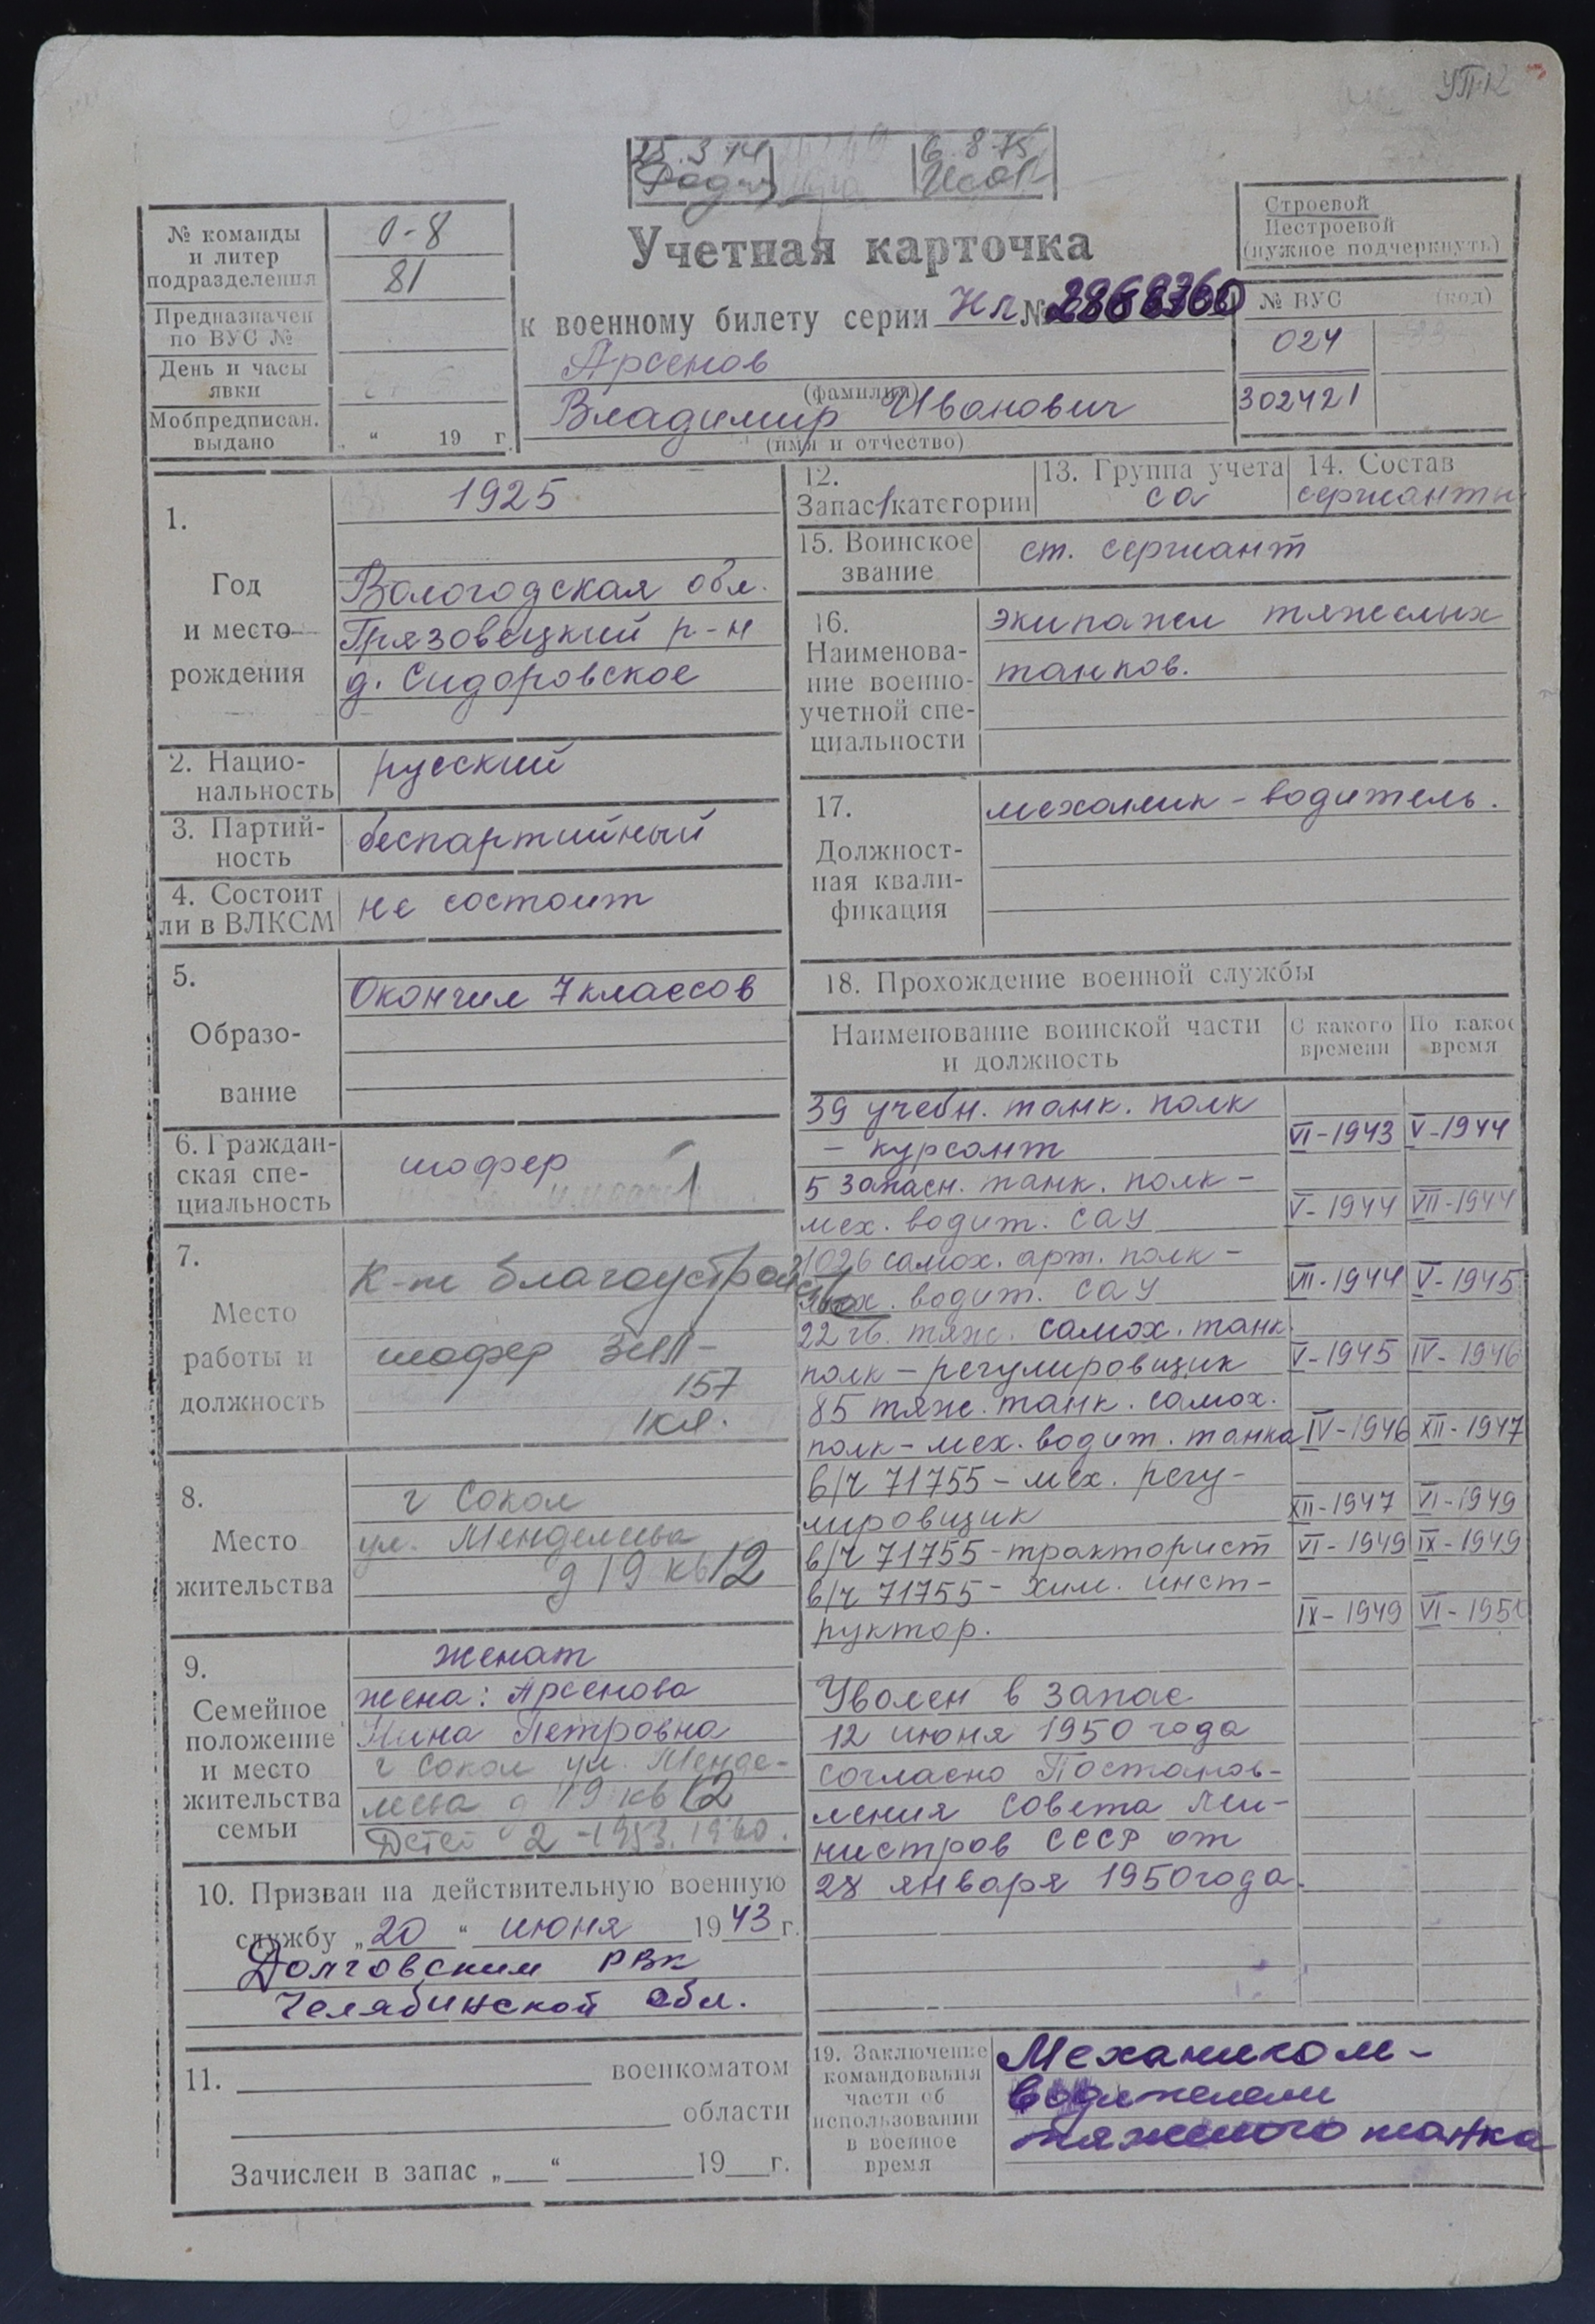 УП-12
25.3 74
6.8-75
№ команды
и литер
подразделения
0-8
81
Предназначен
по ВУС №
День и часы
явки
Мобпредписан.
выдано
„ “ 19 г.
Учетная карточка
к военному билету серии Нл №
Арсенов
(фамилия)
Владимир Иванович
(имя и отчество)
Строевой
Нестроевой
(нужное подчеркнуть)
№ ВУС (код)
024
302421
1.
Год
и место
рождения
1925
Вологодская обл.
Грязовецкий р-н
д. Сидоровское
2. Нацио-
нальность
русский
3. Партий-
ность
беспартийный
4. Состоит
ли в ВЛКСМ
не состоит
5.
Образо-
вание
Окончил 7 классов
6. Граждан-
ская спе-
циальность
шофер
7.
Место
работы и
должность
К-т благоустройст
шофер ЗИЛ-
157
1кл.
8.
Место
жительства
г Сокол
ул. Менделеева
д 19 кв 12
9.
Семейное
положение
и место
жительства
семьи
женат
жена: Арсенова
Нина Петровна
г Сокол ул. Менде-
леева д 19 кв 12
Детей 2 - 1953. 1960.
10. Призван на действительную военную
службу „20“ июня 1943 г.
Долговским РВК
Челябинской обл.
11. военкоматом
области
Зачислен в запас „ “ 19 г.
12.
Запас 1 категории
13. Группа учета
СА
14. Состав
сержанты
15. Воинское
звание
ст. сержант
16.
Наименова-
ние военно-
учетной спе-
циальности
экипажел тяжелых
танков.
17.
Должност-
ная квали-
фикация
механик-водитель.
18. Прохождение военной службы
Наименование воинской части
и должность
С какого
времени
По какое
время
39 учебн. танк. полк
- курсант VI-1943 V-1944
5 запасн. танк. полк -
мех. водит. САУ V-1944 VII-1944
1026 самох. арт. полк -
мех. водит. САУ VII-1944 V-1945
22 гв. тяж. самох. танк.
полк - регулировщик V-1945 IV-1946
85 тяж. танк. самох.
полк - мех. водит. танка IV-1946 XII-1947
в/ч 71755 - мех. регу-
лировщик XII-1947 VI-1949
в/ч 71755 - тракторист VI-1949 IX-1949
в/ч 71755 - хим. инст-
руктор. IX-1949 VI-1950
Уволен в запас
12 июня 1950 года
согласно Постанов-
ления Совета Ми-
нистров СССР от
28 января 1950 года.
19. Заключение
командования
части об
использовании
в военное
время
Механиком-
водителем
тяжелого танка